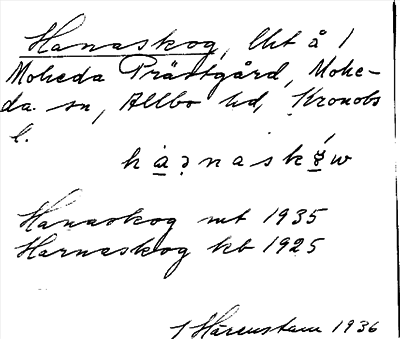 Hanaskog, lht å 1
Moheda Prästgård, Mohe-
da sn, Allbo hd, Kronobs
l.
Hanaskog mt 1935
Harnaskog kb 1925
J Hårenstam 1936